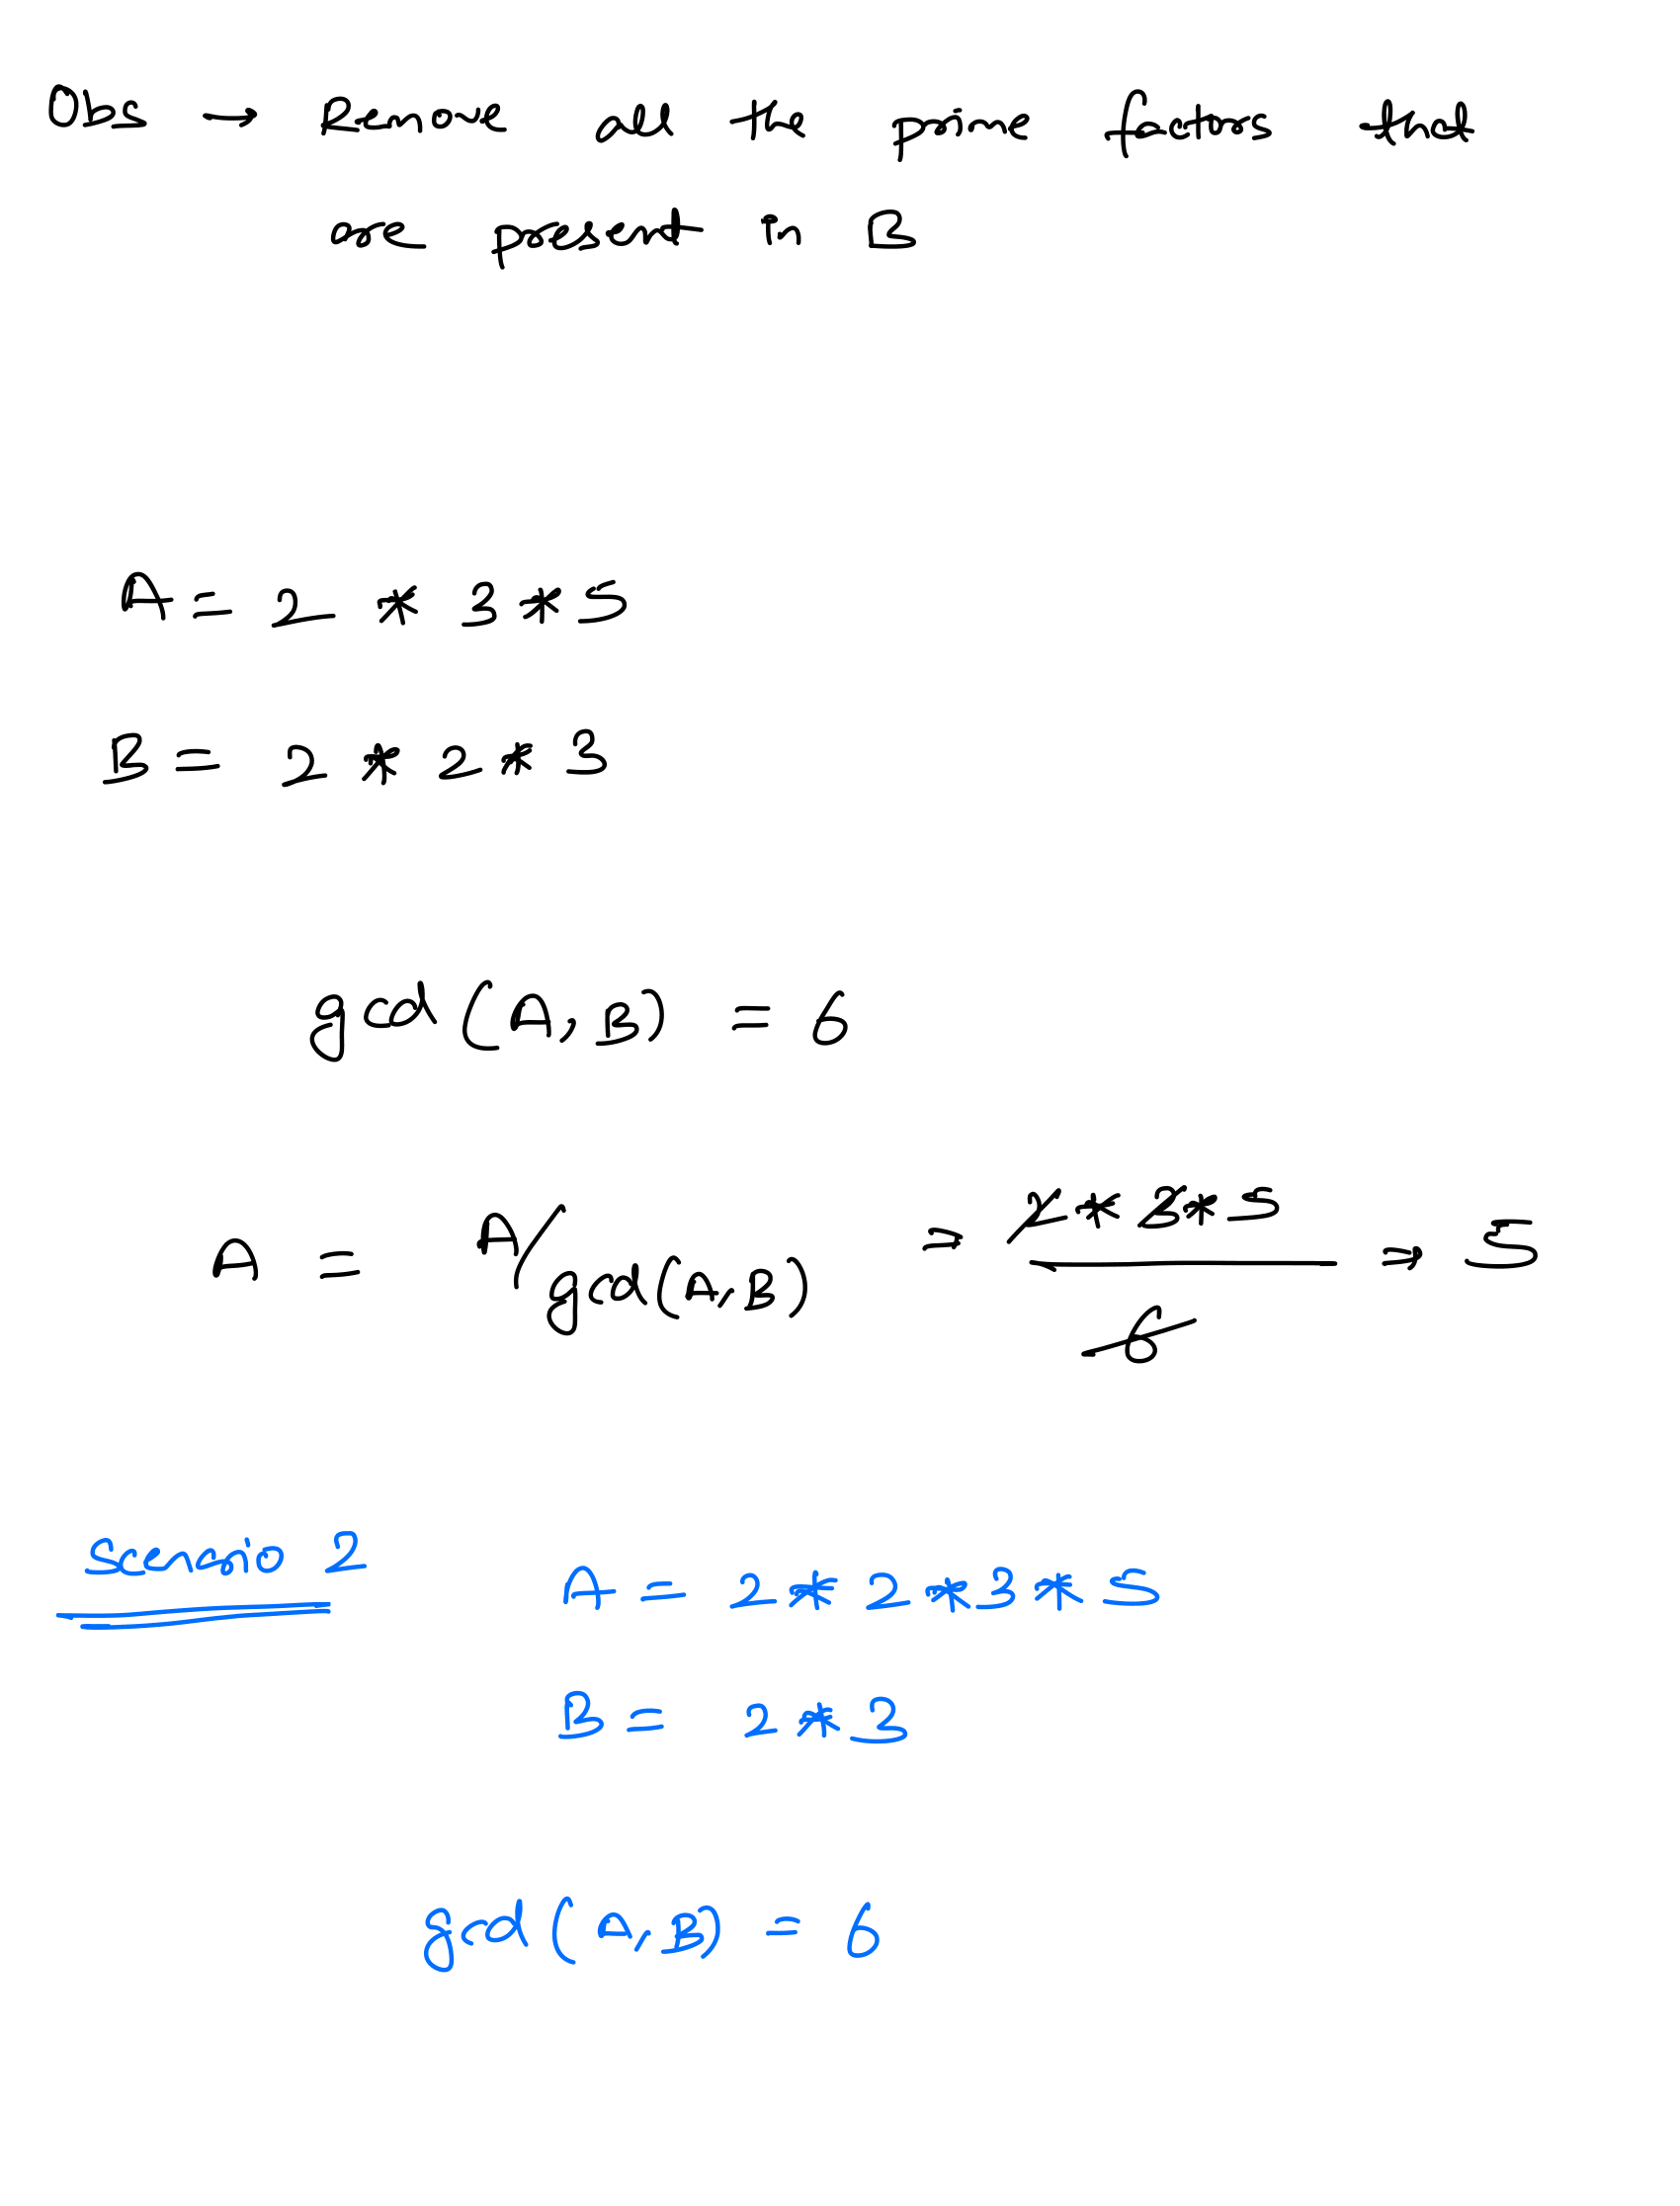 Obs → Remove all the prime factors that
are present in B
A = 2 * 3 * 5
B = 2 * 2 * 3
gcd (A, B) = 6
A = A/gcd(A, B) = 2 * 3 * 5 / 6 → 5
Scenario 2
A = 2 * 2 * 3 * 5
B = 2 * 3
gcd (A, B) = 6